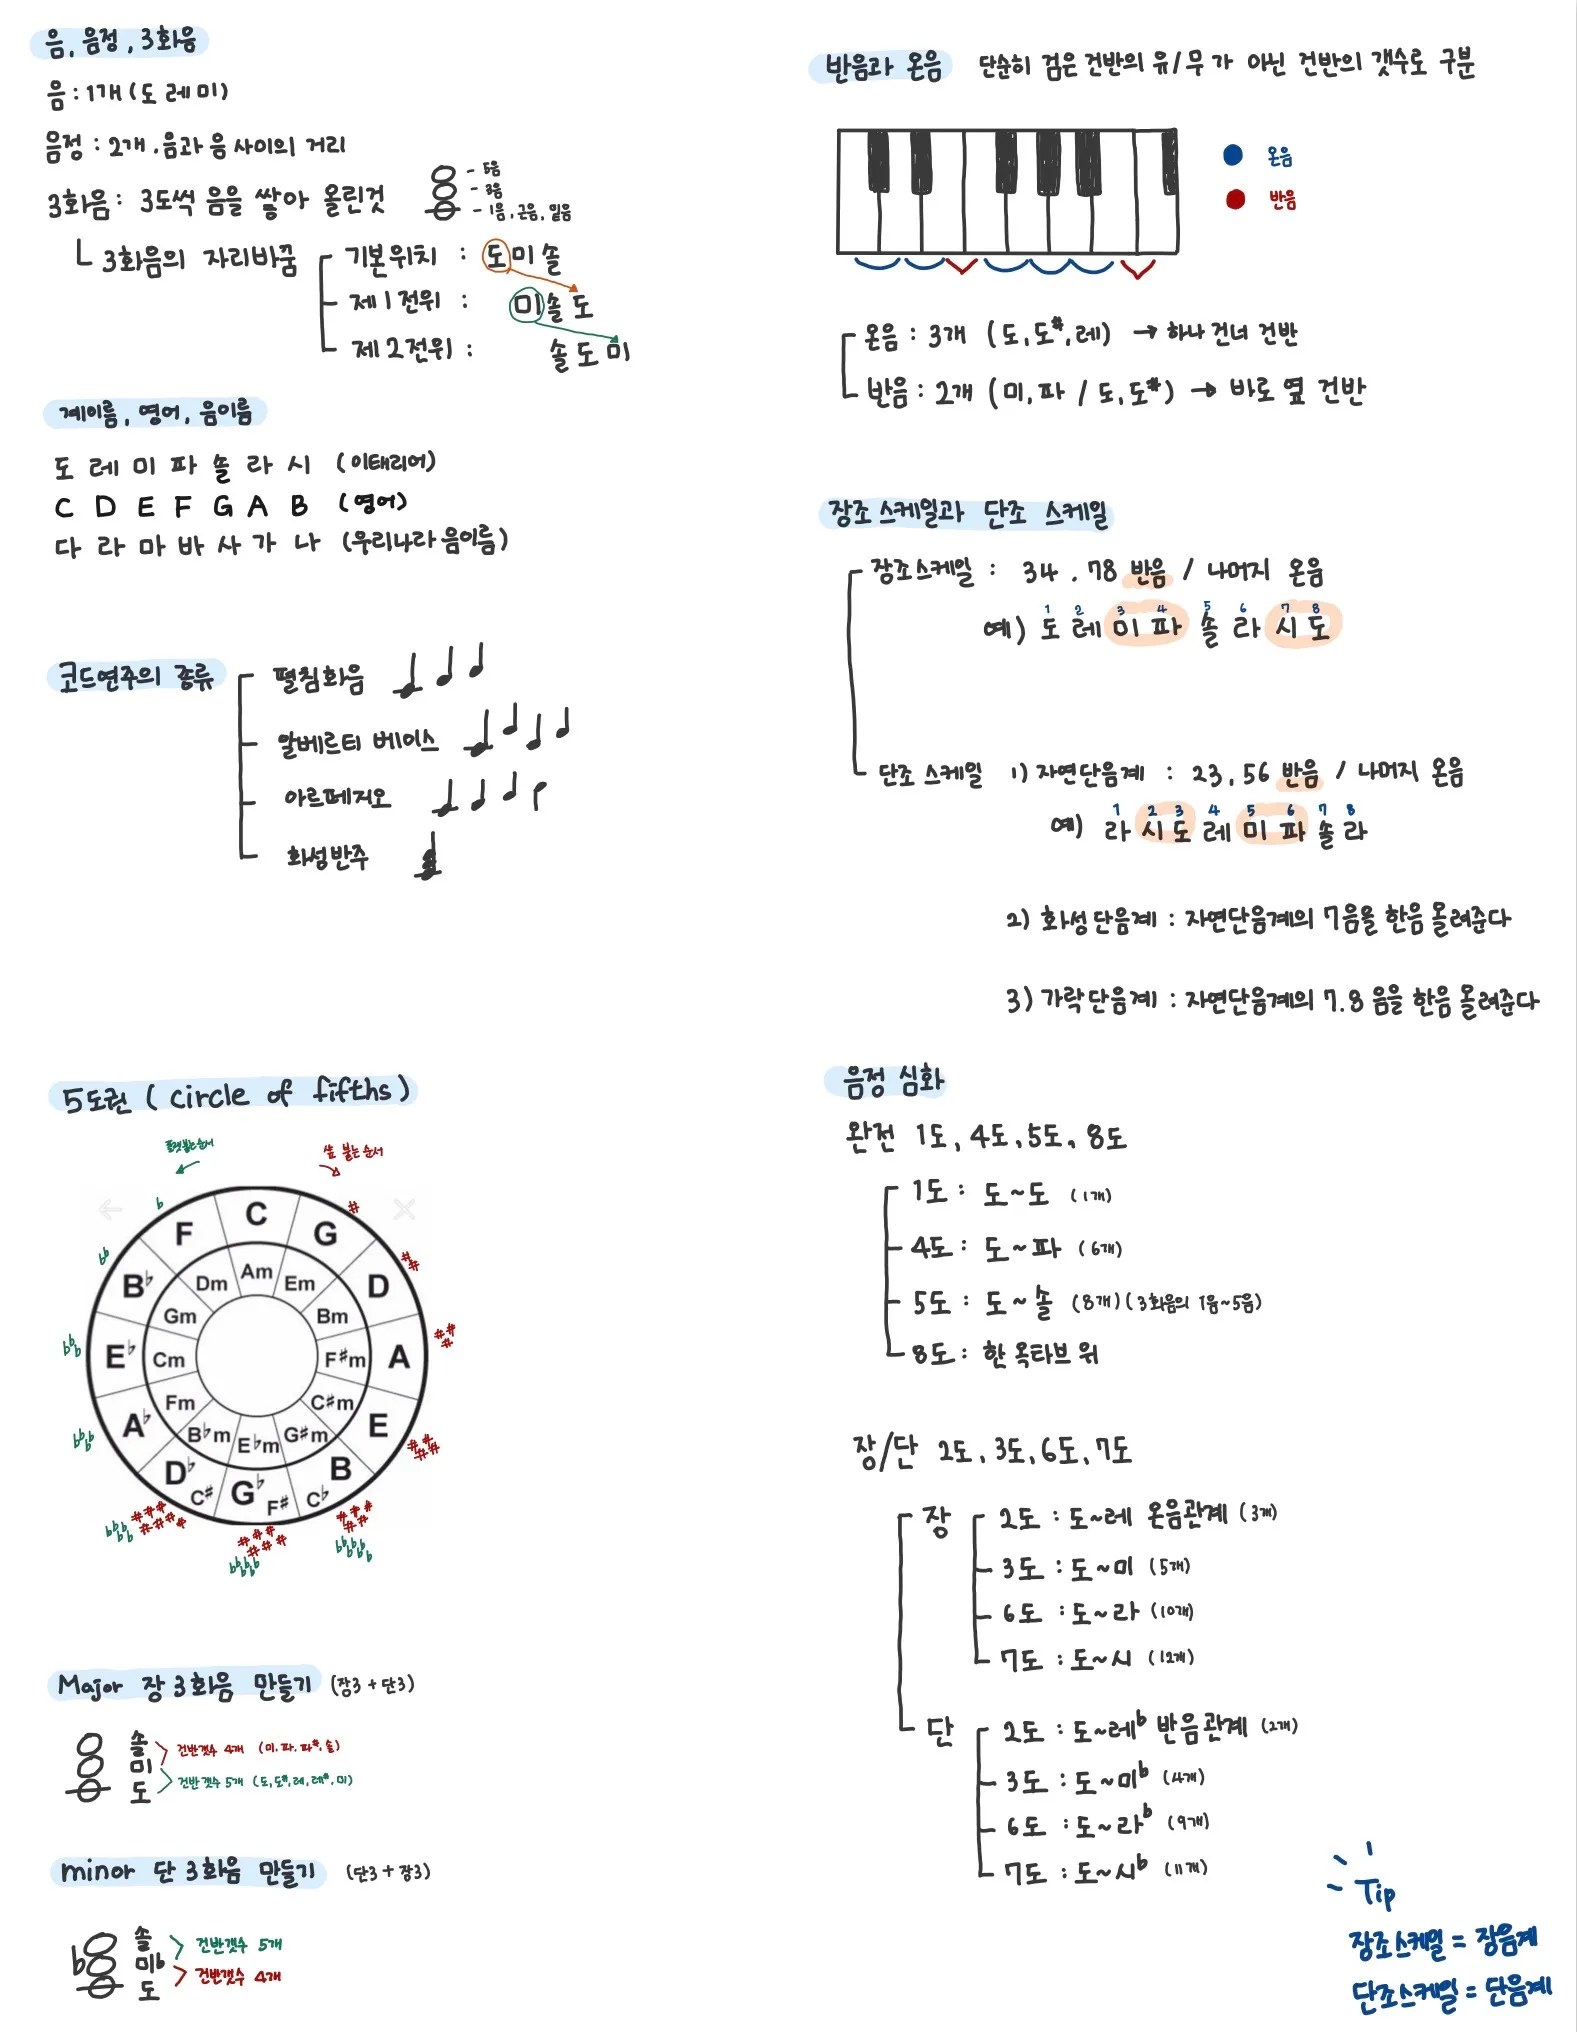 음, 음정, 3화음
음 : 1개 (도 레 미)
음정 : 2개. 음과 음 사이의 거리
3화음 : 3도씩 음을 쌓아 올린것
- 5음
- 3음
- 1음, 근음, 밑음
3화음의 자리바꿈
기본위치 : 도 미 솔
제1전위 : 미 솔 도
제2전위 : 솔 도 미
계이름, 영어, 음이름
도 레 미 파 솔 라 시 (이태리어)
C D E F G A B (영어)
다 라 마 바 사 가 나 (우리나라 음이름)
코드연주의 종류
펼침화음
알베르티 베이스
아르페지오
화성반주
반음과 온음 단순히 검은 건반의 유/무가 아닌 건반의 갯수로 구분
온음
반음
온음 : 3개 (도, 도#, 레) → 하나 건너 건반
반음 : 2개 (미, 파 / 도, 도#) → 바로 옆 건반
장조 스케일과 단조 스케일
장조스케일 : 34 . 78 반음 / 나머지 온음
1 2 3 4 5 6 7 8
예) 도 레 미 파 솔 라 시 도
단조 스케일 1) 자연단음계 : 23, 56 반음 / 나머지 온음
1 2 3 4 5 6 7 8
예) 라 시 도 레 미 파 솔 라
2) 화성단음계 : 자연단음계의 7음을 한음 올려준다
3) 가락단음계 : 자연단음계의 7.8 음을 한음 올려준다
5도권 (circle of fifths)
플랫붙는순서
샾 붙는 순서
C
F G
♭ #
Am
Dm Em
B♭ D
♭♭ ##
Gm Bm
E♭ Cm F#m A
♭♭♭ ###
Fm C#m
A♭ E
♭♭♭♭ ####
B♭m E♭m G#m
D♭ B
C# G♭ F# C♭
음정 심화
완전 1도, 4도, 5도, 8도
1도 : 도~도 (1개)
4도 : 도~파 (6개)
5도 : 도~솔 (8개) (3화음의 1음~5음)
8도 : 한 옥타브 위
장/단 2도, 3도, 6도, 7도
장
2도 : 도~레 온음관계 (3개)
3도 : 도~미 (5개)
6도 : 도~라 (10개)
7도 : 도~시 (12개)
단
2도 : 도~레♭ 반음관계 (2개)
3도 : 도~미♭ (4개)
6도 : 도~라♭ (9개)
7도 : 도~시♭ (11개)
Major 장 3화음 만들기 (장3 + 단3)
솔
건반갯수 4개 (미. 파. 파#. 솔)
미
건반갯수 5개 (도, 도#, 레, 레#, 미)
도
minor 단 3화음 만들기 (단3 + 장3)
솔
건반갯수 5개
♭ 미♭
건반갯수 4개
도
Tip
장조스케일 = 장음계
단조스케일 = 단음계